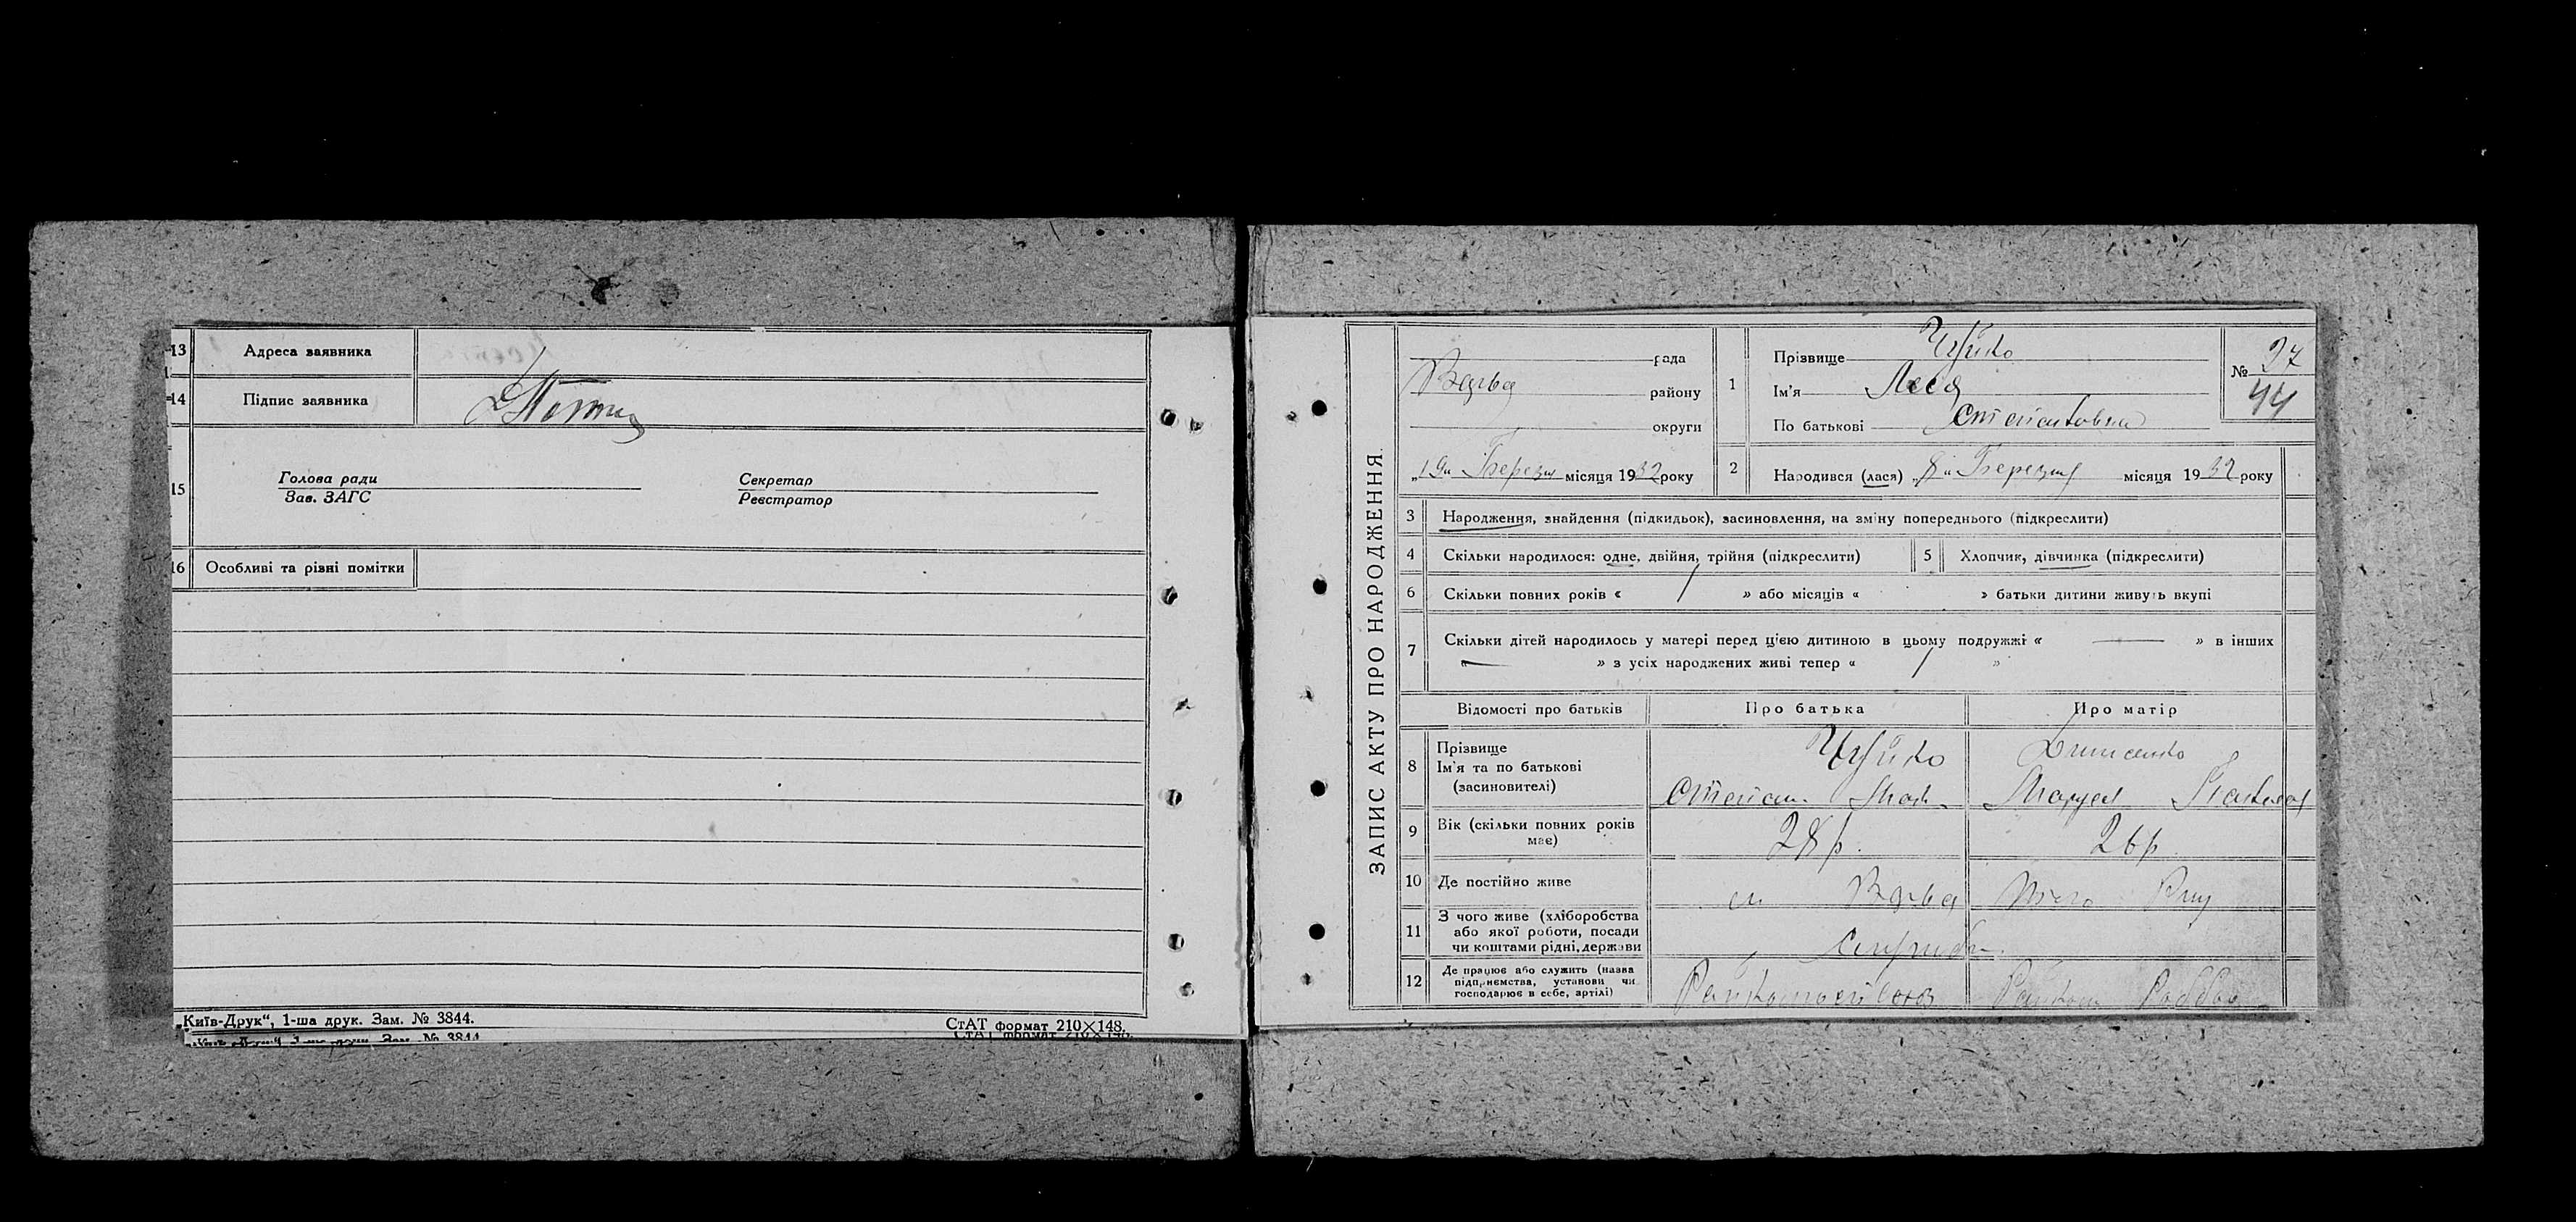 13 Адреса заявника
14 Підпис заявника
15 Голова ради
Зав. ЗАГС
Секретар
Реєстратор
16 Особливі та різні помітки
„Київ-Друк“, 1-ша друк. Зам. № 3844.
СтАТ формат 210×148.
ЗАПИС АКТУ ПРО НАРОДЖЕННЯ
рада
Варва району
округи
„19“ Березня місяця 1932 року
1 Прізвище Чуйко
Ім'я Леся
По батькові Степановна
№ 37
44
2 Народився (лася) „8“ Березня місяця 1932 року
3 Народження, знайдення (підкидьок), засиновлення, на зміну попереднього (підкреслити)
4 Скільки народилося: одне, двійня, трійня (підкреслити)
5 Хлопчик, дівчинка (підкреслити)
6 Скільки повних років « / » або місяців « » батьки дитини живуть вкупі
7 Скільки дітей народилось у матері перед цією дитиною в цьому подружжі « — » в інших
« — » з усіх народжених живі тепер « / »
Відомості про батьків Про батька Про матір
8 Прізвище
Ім'я та по батькові
(засиновителі)
Чуйко
Степан
Денисенко
Маруся
9 Вік (скільки повних років має)
28 р.
26 р.
10 Де постійно живе
м Варва
11 З чого живе (хліборобство або якої роботи, посади чи коштами рідні, держави
12 Де працює або служить (назва підприємства, установи чи господарює в себе, артілі)